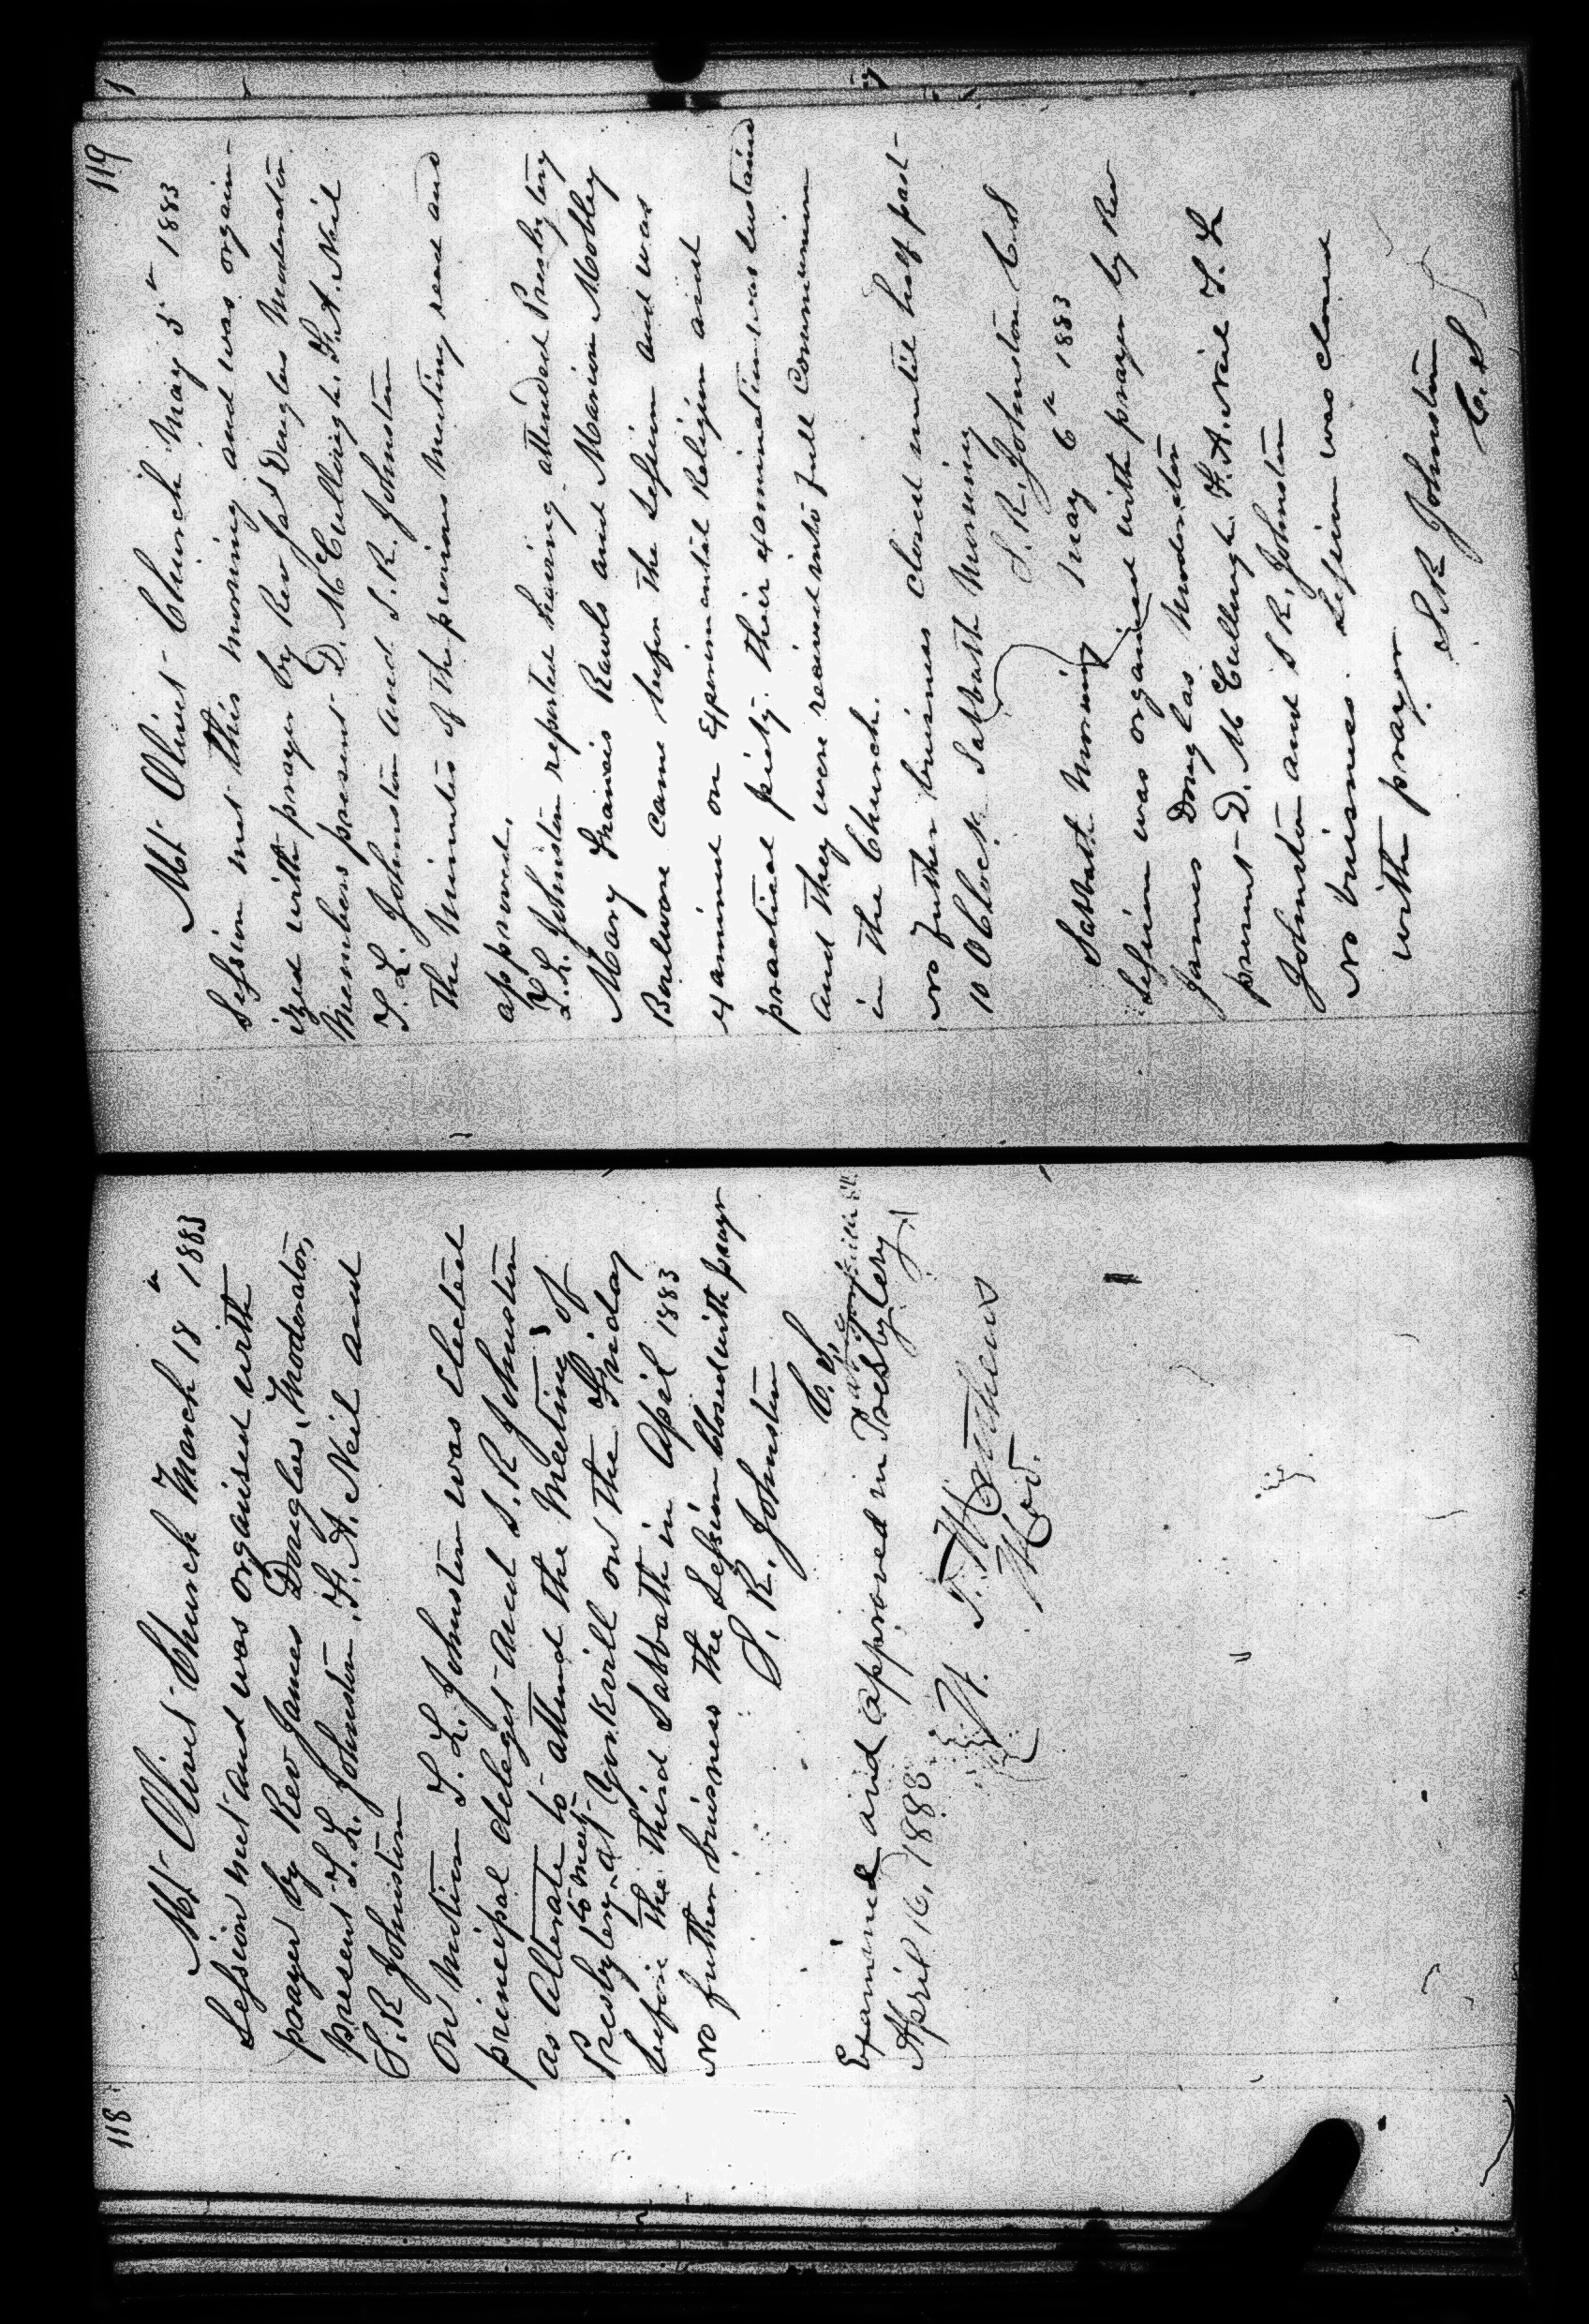 118
Mt Olivet Church March 18" 1883
Session met and was organised with
prayer by Rev James Douglas, Moderator,
present T. L. Johnston, F. A. Neil and
S. R Johnston
On motion T. L. Johnston was elected
principal deleget and S. R Johnston
as Alternate to attend the Meeting of
Presbytery to meet at Yorkvill on the Friday
before the third Sabbath in April 1883
No further buisness the Session closed with prayr
S. R. Johnston
C. S.
Examined and approved in Presbytery
April 16, 1883.
H. T. Mathews
Mod.
119
Mt Olivet Church May 5" 1883
Session met this morning and was organ-
ized with prayer by Rev Jas Douglas Moderator
Members present D. McCullough. F. A. Neil
T. L. Johnston and S. R. Johnston
The Minutes of the previous meeting read and
approved.
T. L. Johnston reported having attended Presbytery
Mary Francis Rawls and Marion Mobley
Boulware came before the Session and was
examined on Experimental Religion and
practical piety. their examination was sustaind
and they were received into full Communion
in the Church.
No further buisness closed untill half past
10 O Clock Sabbath Morning
S. R. Johnston C. S
Sabbath Morning May 6" 1883
Session was organised with prayer by Rev
James Douglas Moderator
present D. McCullough. F. A. Neil T. L
Johnston and S R. Johnston
No buisness. Session was closed
with prayer.
S R Johnston
C. S